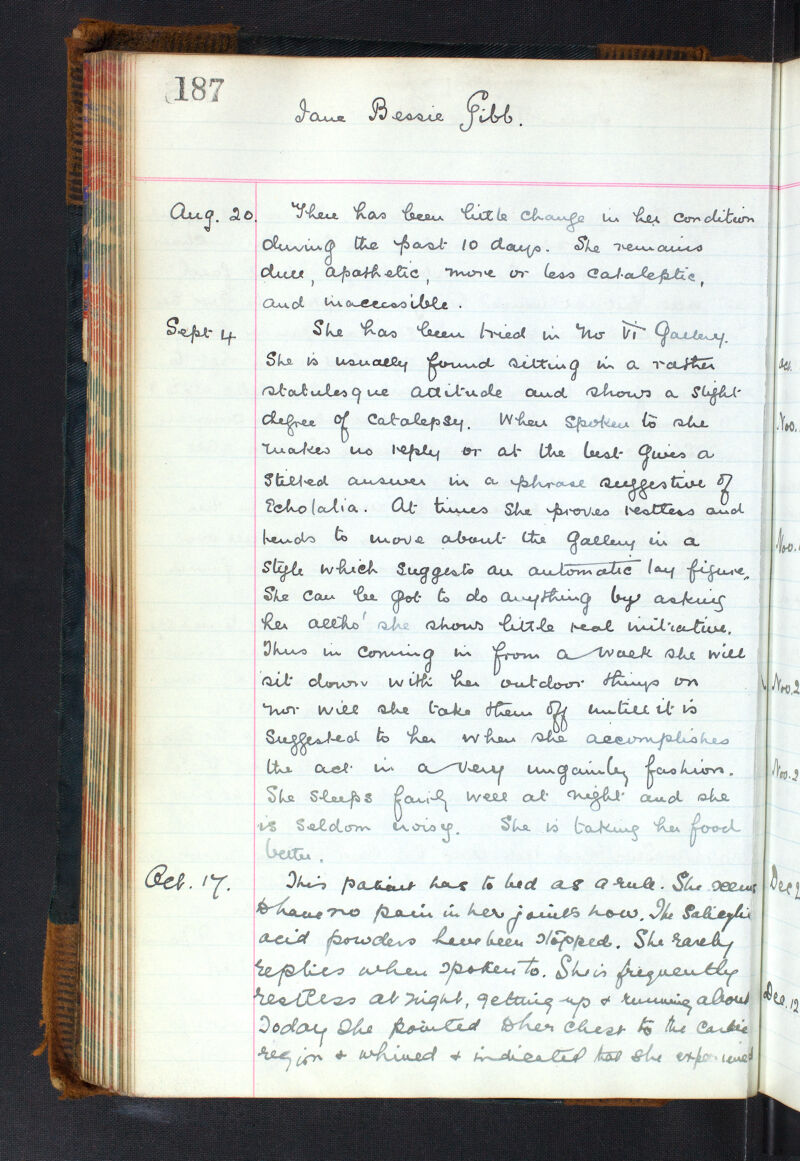 187
Jane Bessie Gibb.
Aug. 20. There has been little change in her condition
during the past 10 days. She remains
dull, apathetic, more or less cataleptic,
and inaccessible.
Sept 4 She has been tried in No VI Gallery.
She is usually found sitting in a rather
statulesque attitude and shows a slight
degree of catalepsy. When spoken to she
makes no reply or at the best gives a
stilted answer in a phrase suggestive of
Echolalia. At times she proves restless and
tends to move about the gallery in a
style which suggests an automatic lay figure.
She can be got to do anything by asking
her altho' she shows little real initiative.
Thus in coming in from a walk she will
sit down with her outdoor things on
nor will she take them off untill it is
suggested to her when she accomplishes
the act in a very ungainly fashion.
She sleeps fairly well at night and she
is seldom noisy. She is taking her food
better.
Oct. 17. This patient has to bed as a rule. She seems
to have no pain in her joints now. The Salicylic
acid powders have been stopped. She rarely
replies when spoken to. She is frequently
restless at night, getting up & running about
Today she pointed to her chest to the cardiac
region & whined & indicated that she experienced
Nov.
Nov.
Nov. 2
Nov. 2
Dec 2
Dec. 12